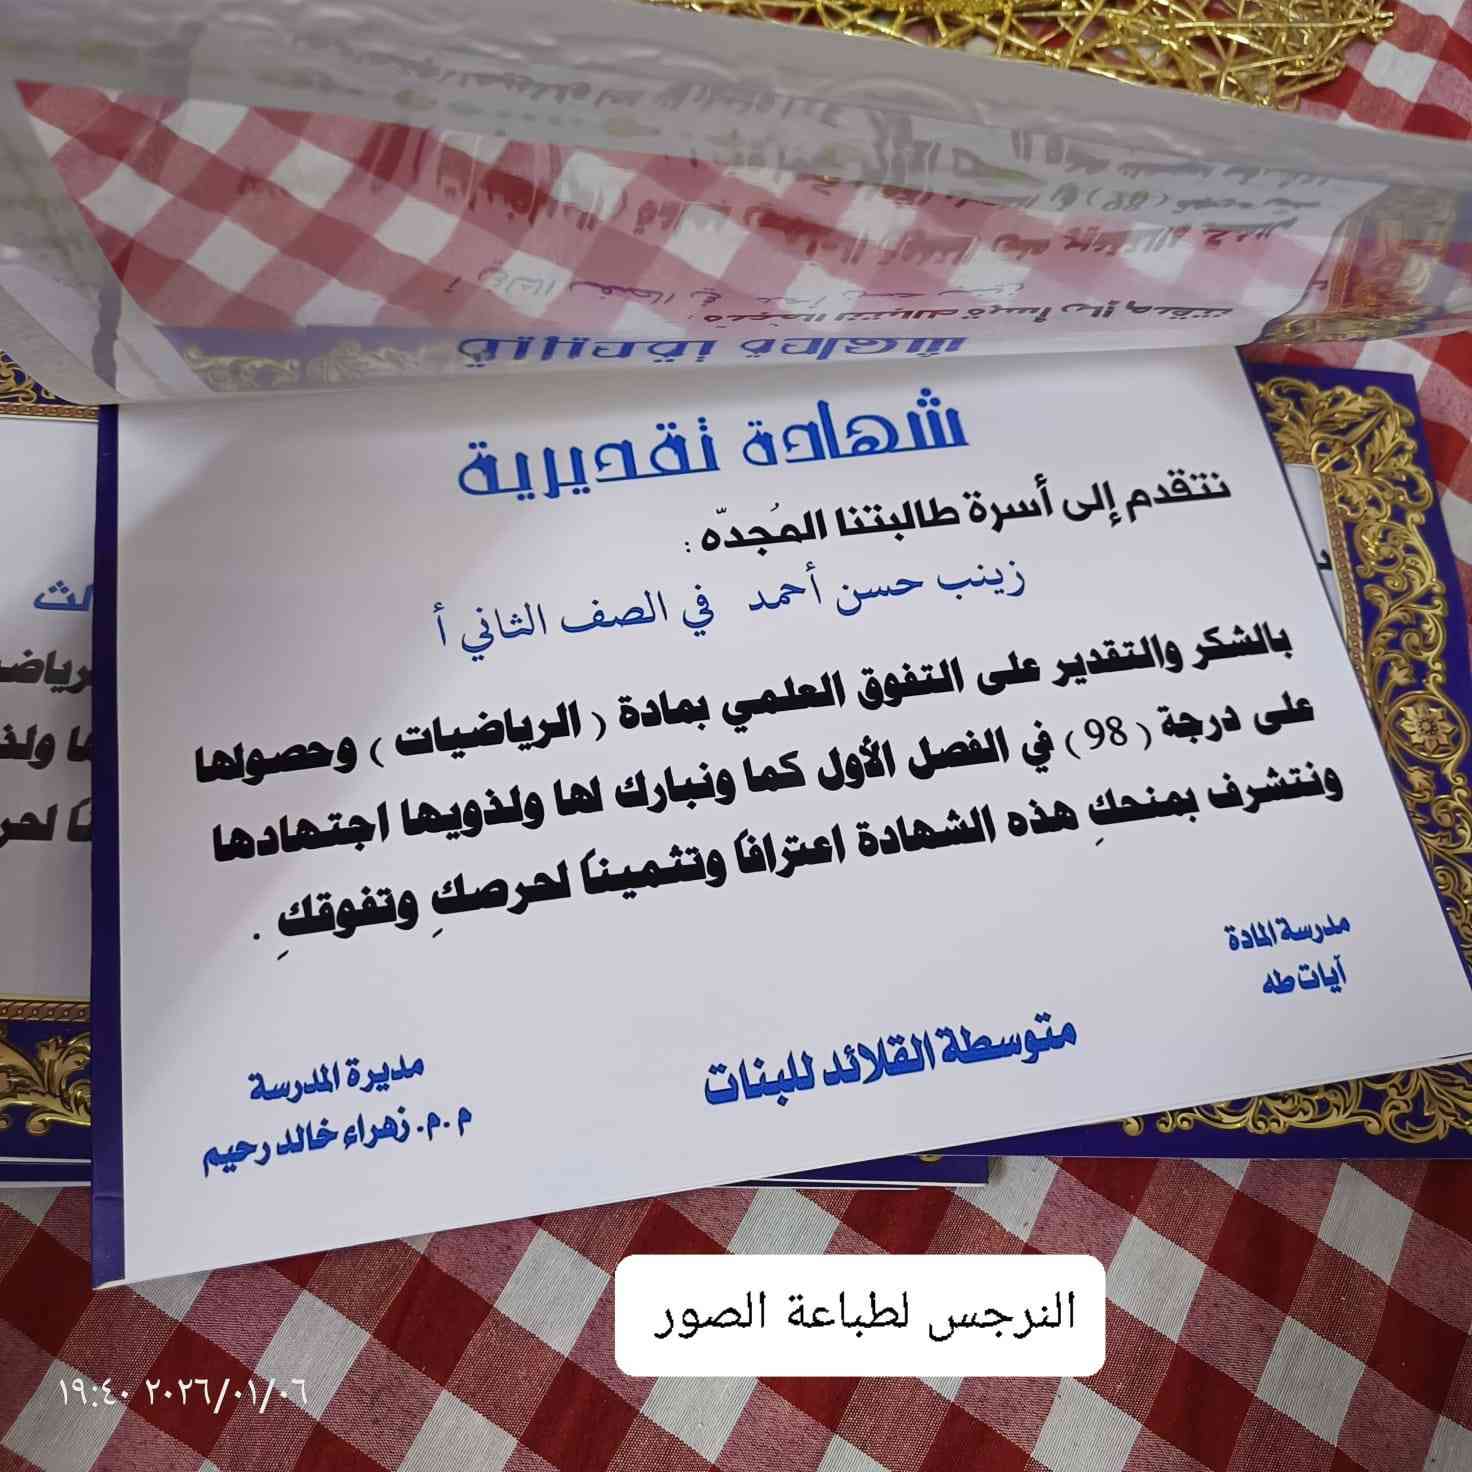 شهادة تقديرية
نتقدم إلى أسرة طالبتنا المُجدّه :
زينب حسن أحمد في الصف الثاني أ
بالشكر والتقدير على التفوق العلمي بمادة ( الرياضيات ) وحصولها
على درجة ( 98 ) في الفصل الأول كما ونبارك لها ولذويها اجتهادها
ونتشرف بمنحكِ هذه الشهادة اعترافاً وتثميناً لحرصكِ وتفوقكِ .
مدرسة المادة
آيات طه
متوسطة القلائد للبنات
مديرة المدرسة
م.م. زهراء خالد رحيم
النرجس لطباعة الصور
٢٠٢٦/٠١/٠٦ ١٩:٤٠